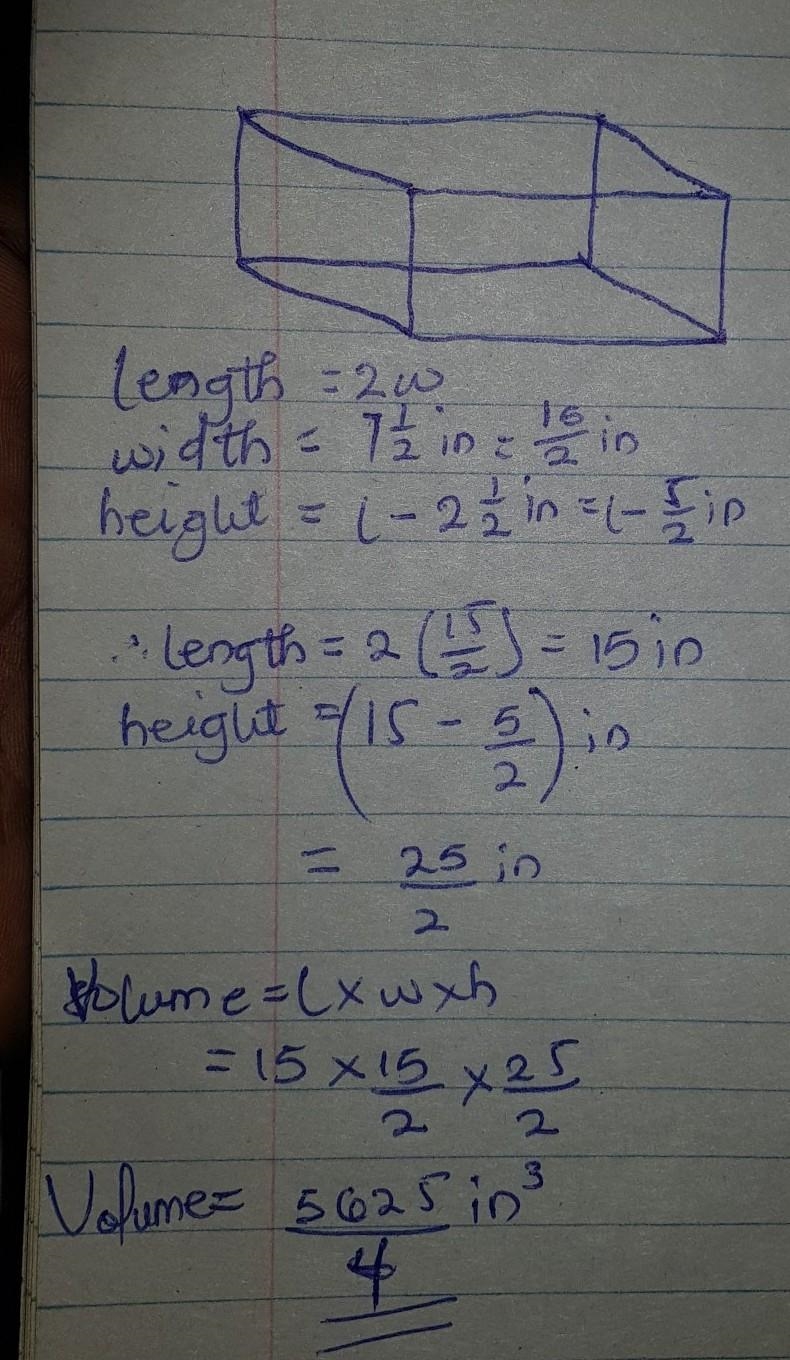 length = 2w
width = 7 1/2 in = 15/2 in
height = l - 2 1/2 in = l - 5/2 in
∴ length = 2 (15/2) = 15 in
height = (15 - 5/2) in
= 25/2 in
Volume = l x w x h
= 15 x 15/2 x 25/2
Volume = 5625/4 in³